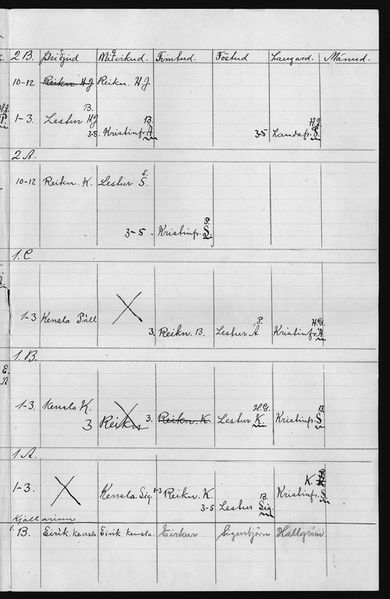 2 B. Þriðjud Miðvikud. Fimtud. Föstud Laugard. Mánud.
10-12 Reikn HJ Reikn. HJ
B. B. HJ
1-3. Lestur HJ 3-5 Kristinfr. 3-5 Landafr. S.
2 A.
S.
10-12 Reikn. K. Lestur S.
P.
3-5 Kristinfr. S.
1. C
P.
1-3 Kensla Páll 3. Reikn. B. Lestur Á Kristinfr.
1. B.
1-3. Kensla K. Reikn. K. Lestur K. Kristinfr. S
3 3.
1. A.
K.
1-3. Kensla Sig. 1-3 Reikn. K. Kristinfr. S
B.
3-5 Lestur Sig.
Kjallarinn
1 B. Eirík kensla Eirík kensla. Eiríkur Sigurbjörn Hallgrím